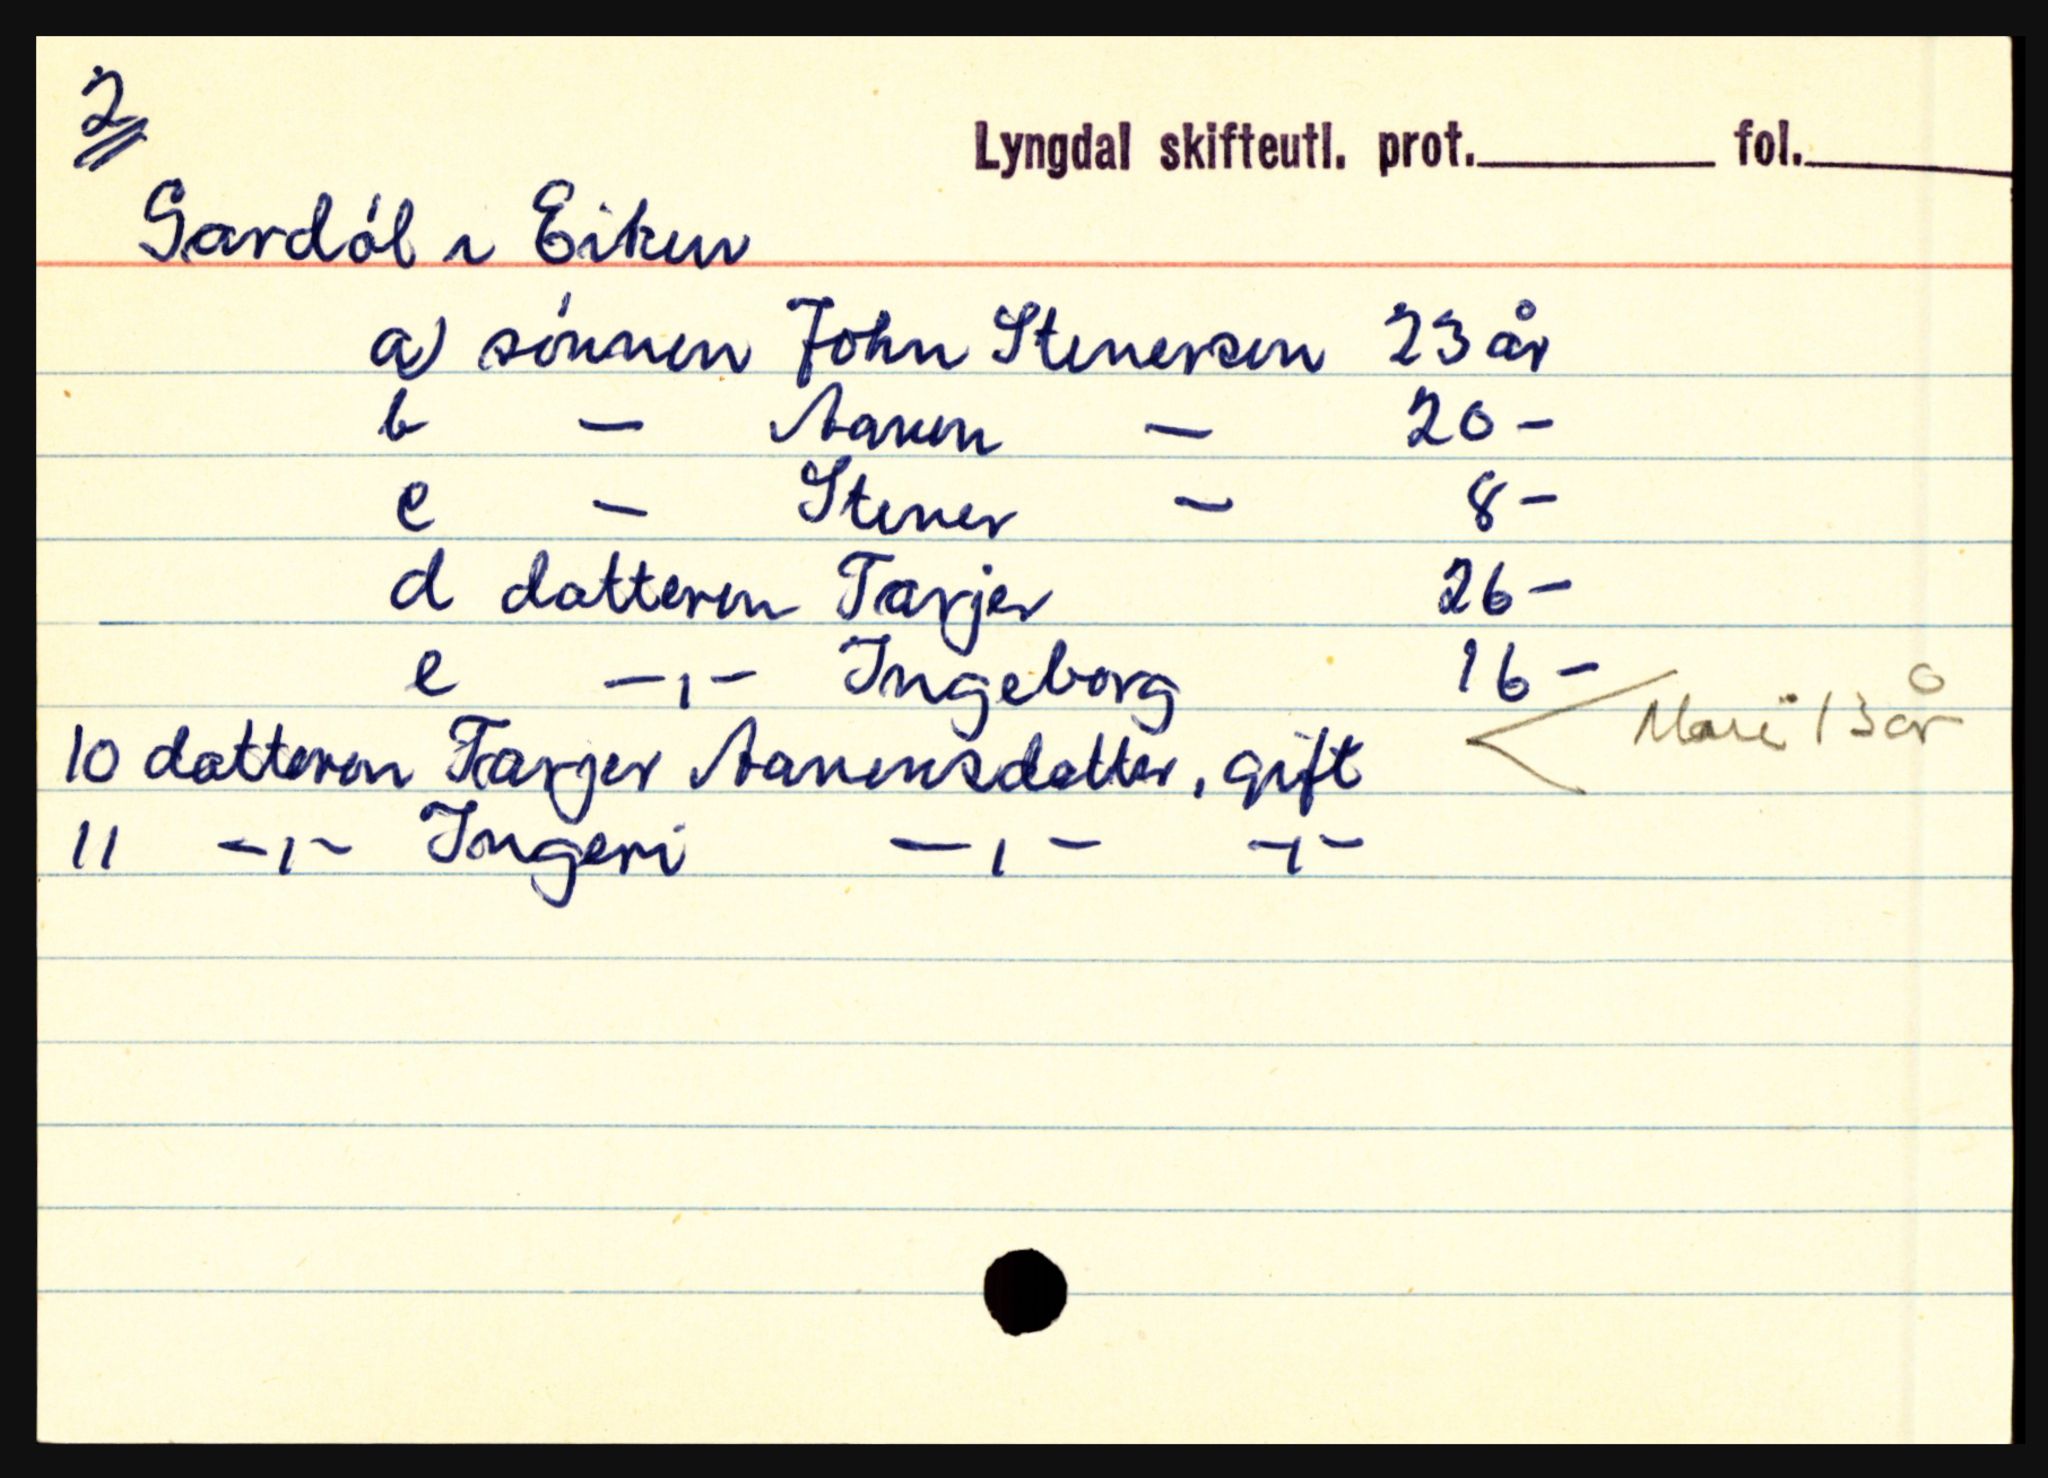 2
Lyngdal skifteutl. prot.________ fol.________
Gardøl i Eiken
a) sønnen John Stenersen 23 år
b — Aanen — 20 -
c — Stener — 8 -
d datteren Tarjer 26 -
e -,- Ingeborg 16 -
Mari 13 år
10 datteren Tarjer Aanensdatter, gift
11 -,- Ingeri -,- -,-